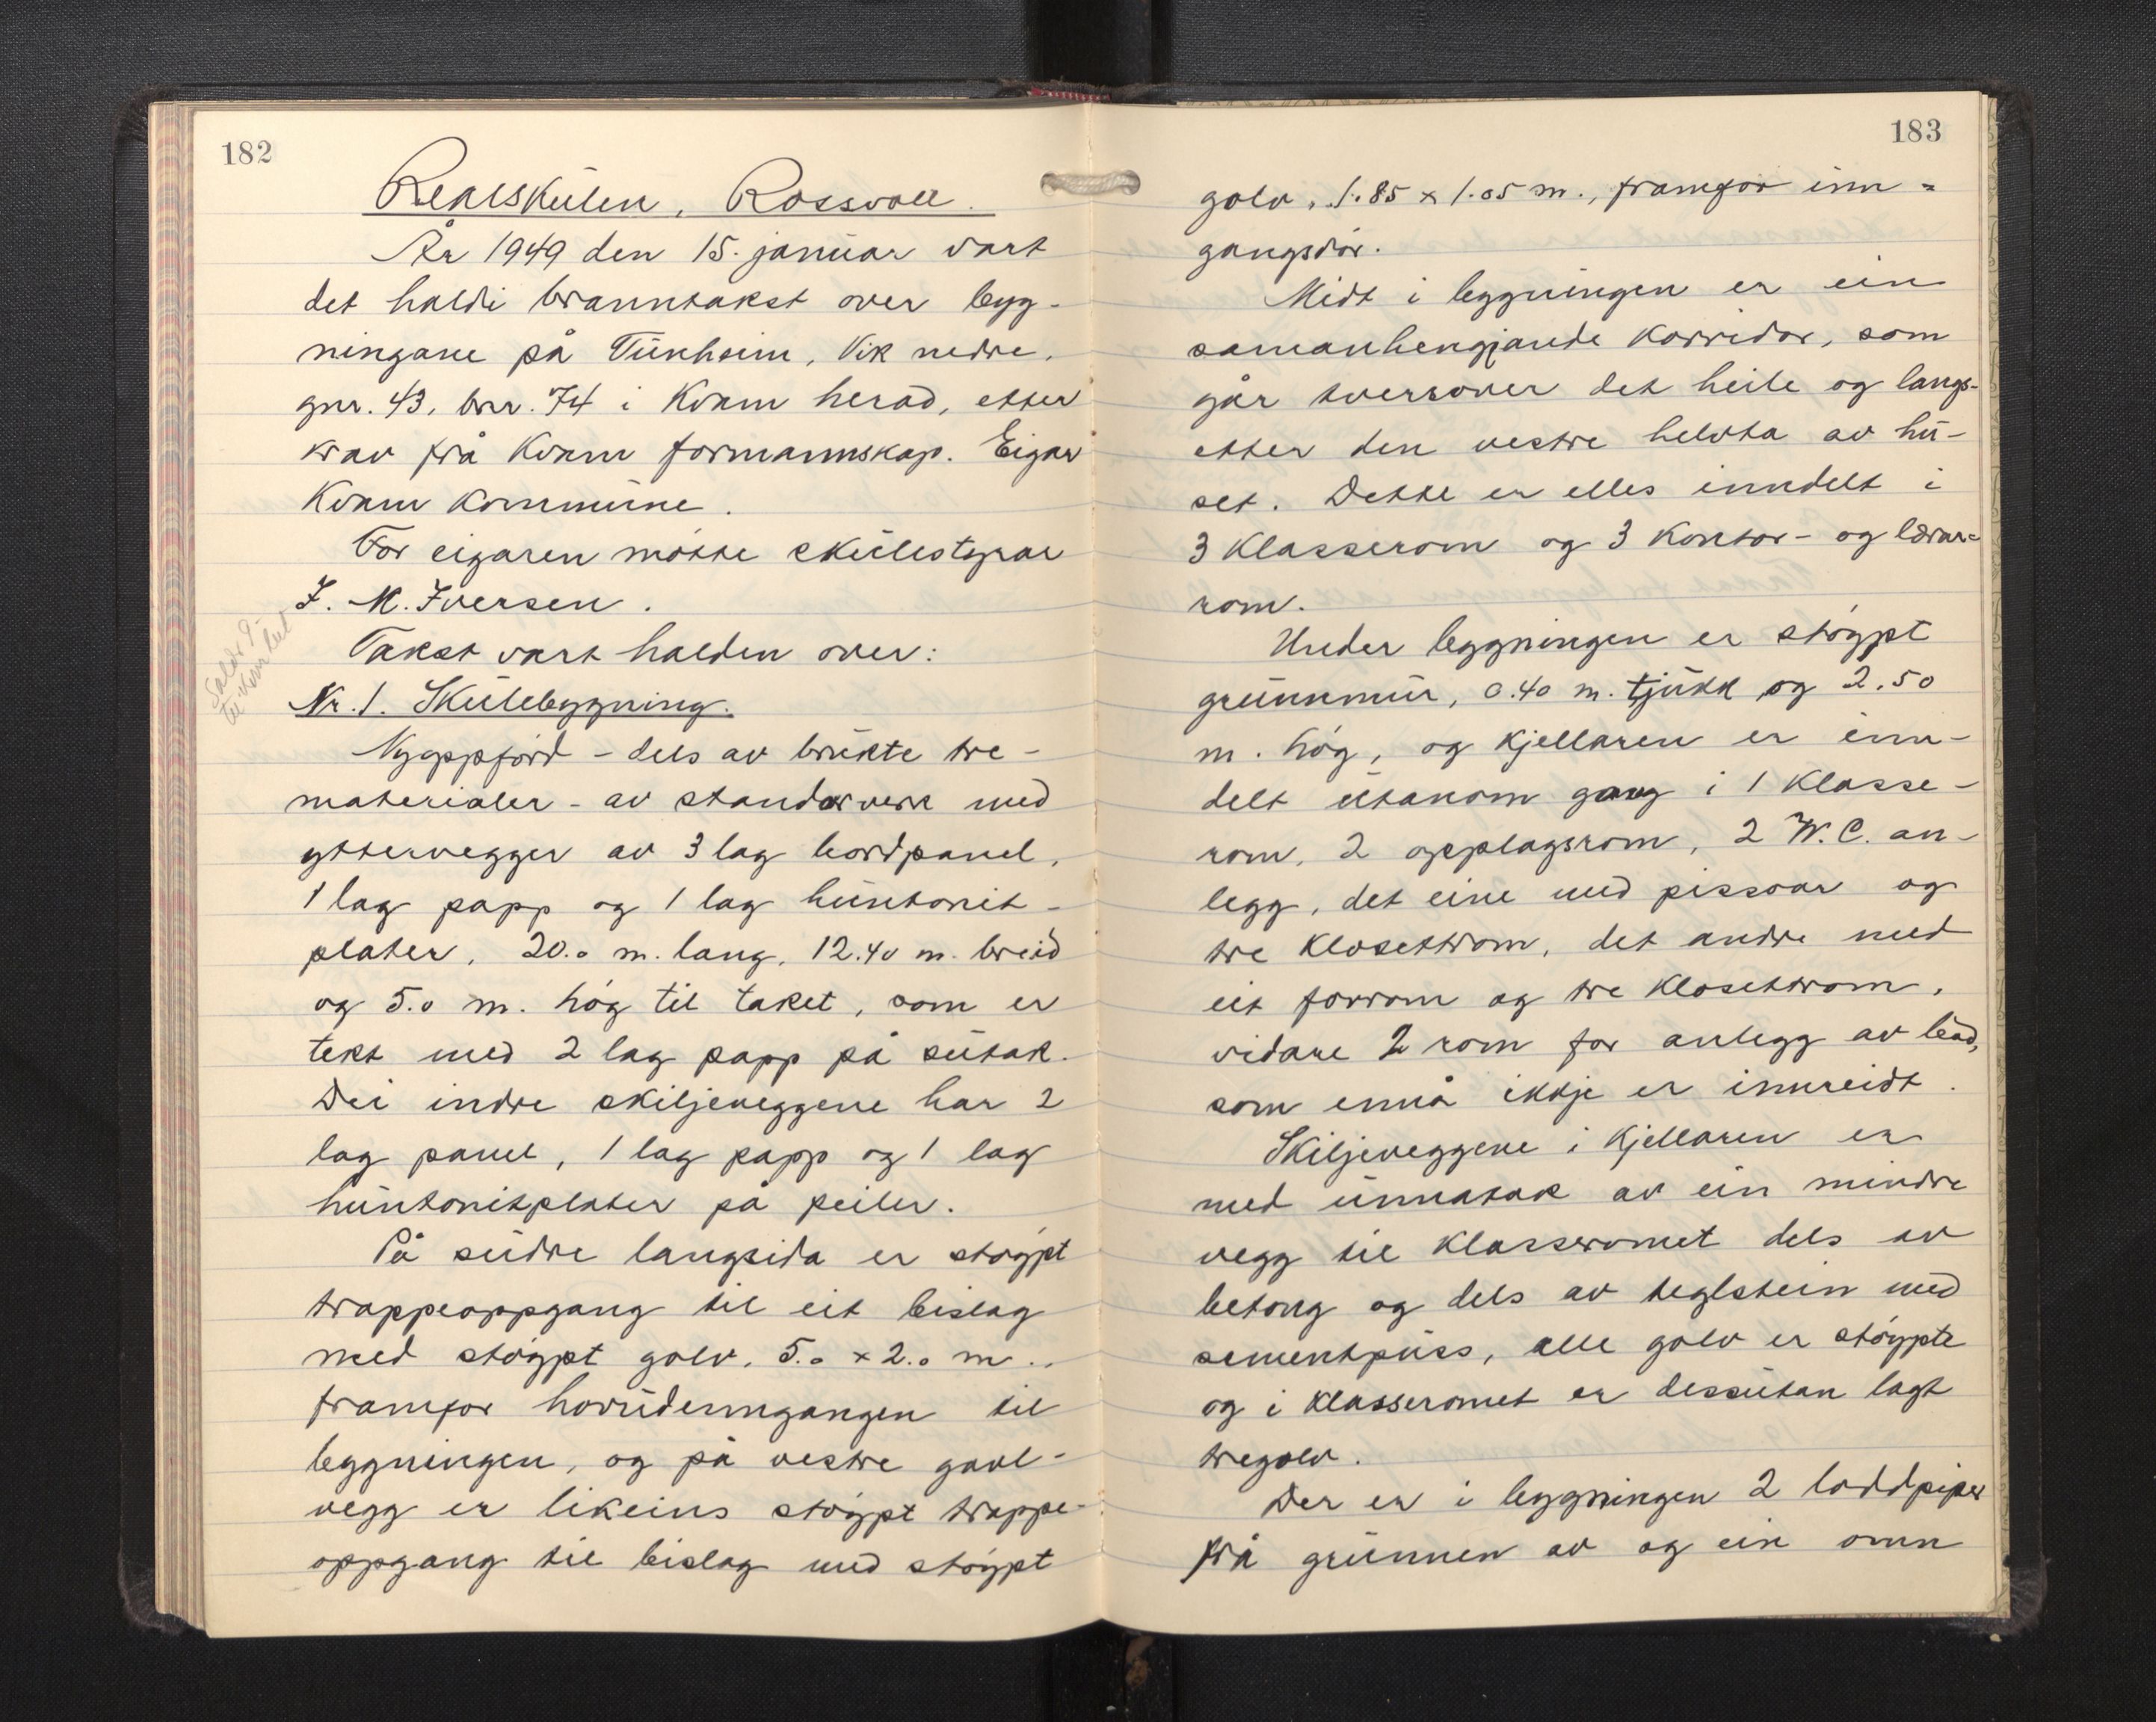 182
Realskulen, Rossvoll.
År 1949 den 15. januar vart
det haldi branntakst over byg-
ningane på Tunheim, Vik nedre,
gnr. 43, bnr. 74 i Kvam herad, etter
krav frå Kvam formannskap. Eigar
Kvam kommune.
For eigaren møtte skulestyrar
J. M. Iversen.
Takst vart halden over:
Nr. 1. Skulebygning.
Nyoppförd - dels av brukte tre-
materialer - av standarverk med
yttervegger av 3 lag bordpanel,
1 lag papp og 1 lag huntonit-
plater, 20.0 m. lang, 12.40 m. breid
og 5.0 m. høg til taket, som er
tekt med 2 lag papp på sutak.
Dei indre skiljeveggene har 2
lag panel, 1 lag papp og 1 lag
huntonitplater på peiler.
På sudre langsida er støypt
trappeoppgang til eit bislag
med støypt golv, 5.0 x 2.0 m..
framfor hovudinngangen til
bygningen, og på vestre gavl-
vegg er likeins støypt trappe-
oppgang til bislag med støypt
183
golv, 1.85 x 1.05 m., framfor inn=
gangsdør.
Midt i bygningen er ein
samanhengjande korridor, som
går tversover det heile og langs-
etter den vestre helvta av hu-
set. Dette er elles inndelt i
3 klasserom og 3 kontor- og lærar=
rom.
Under bygningen er støypt
grunnmur, 0.40 m. tjukk og 2.50
m. høg, og kjellaren er inn-
delt utanom gang i 1 klasse-
rom, 2 opplagsrom, 2 W.C. an-
legg, det eine med pissoar og
tre klosettrom, det andre med
eit forrom og tre klosettrom,
vidare 2 rom for anlegg av bad,
som ennå ikkje er innreidt.
Skiljeveggene i kjellaren er
med unnatak av ein mindre
vegg til klasseromet dels av
betong og dels av teglstein med
sementpuss, alle golv er støypte
og i klasseromet er dessutan lagt
tregolv.
Der er i bygningen 2 loddpiper
frå grunnen av og ein omn